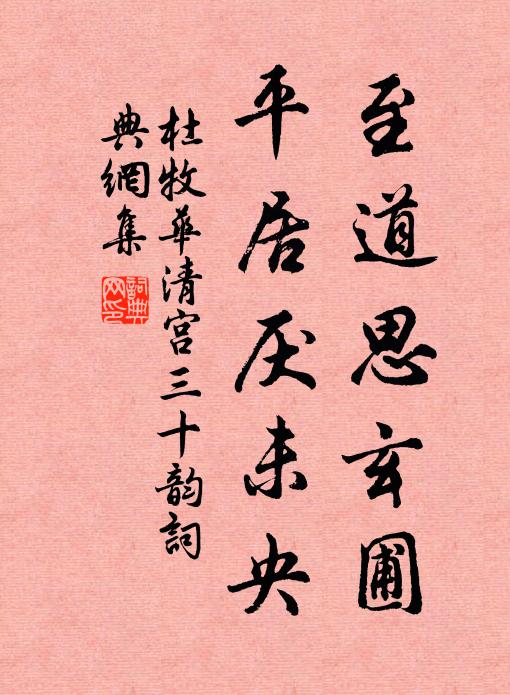 至道思玄圃
平居厌未央
杜牧華清宮三十韵詞
典網集
詞典網印